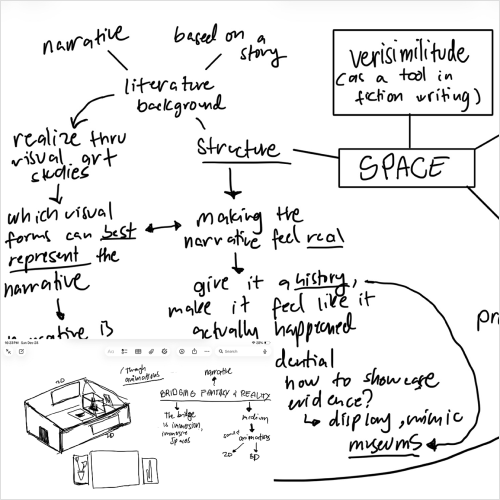 narrative
based on a
story
literature
background
verisimilitude
(as a tool in
fiction writing)
realize thru
visual art
studies
structure
SPACE
which visual
forms can best
represent the
narrative
making the
narrative feel real
give it a history,
make it feel like it
actually happened
dential
how to showcase
evidence?
↳ display, mimic
museums
Search
through
animations
narrative
BRIDGING FANTASY & REALITY
The bridge
is immersion,
immersive
spaces
medium
animations
2D
3D